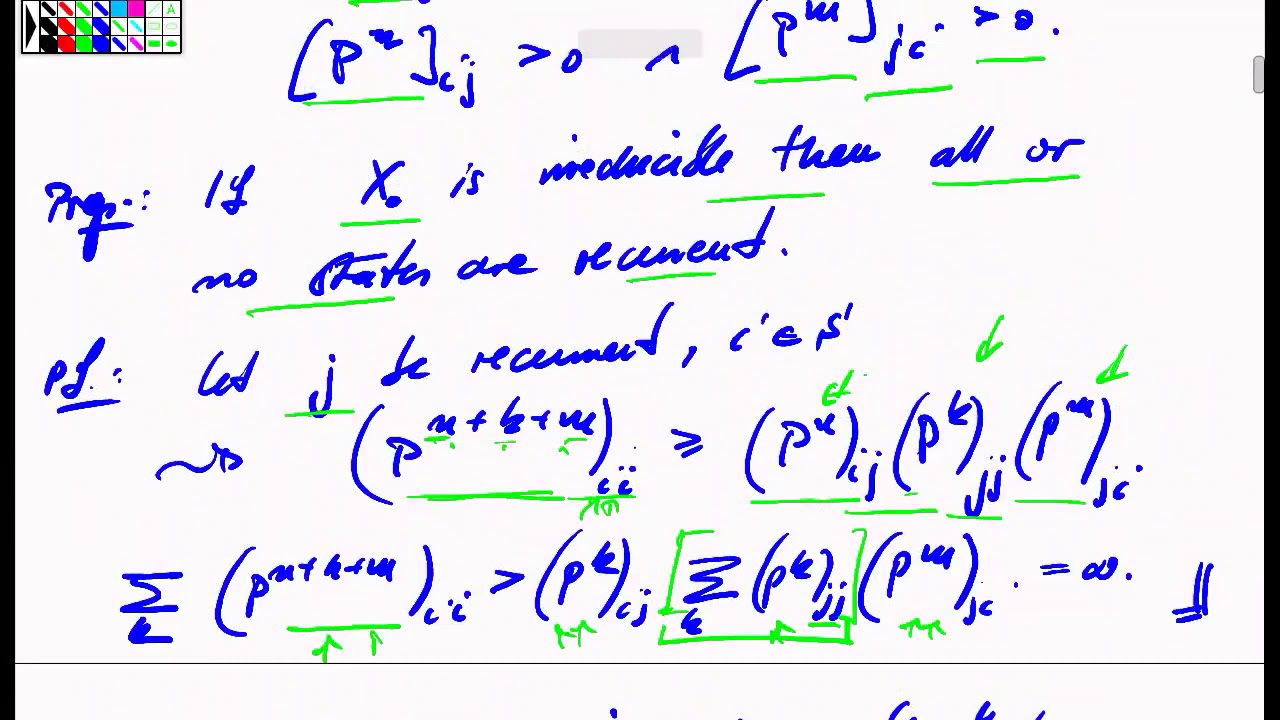 [P^n]_{ij} > 0 ∧ [P^m]_{ji} > 0.
Prop.: If X. is irreducible then all or
no states are recurrent.
Pf.: Let j be recurrent, i ∈ S
⇝ (P^{n+k+m})_{ii} ≥ (P^n)_{ij} (P^k)_{jj} (P^m)_{ji}
∑_k (P^{n+k+m})_{ii} > (P^k)_{ij} [∑_k (P^k)_{jj}] (P^m)_{ji} = ∞. ⫫